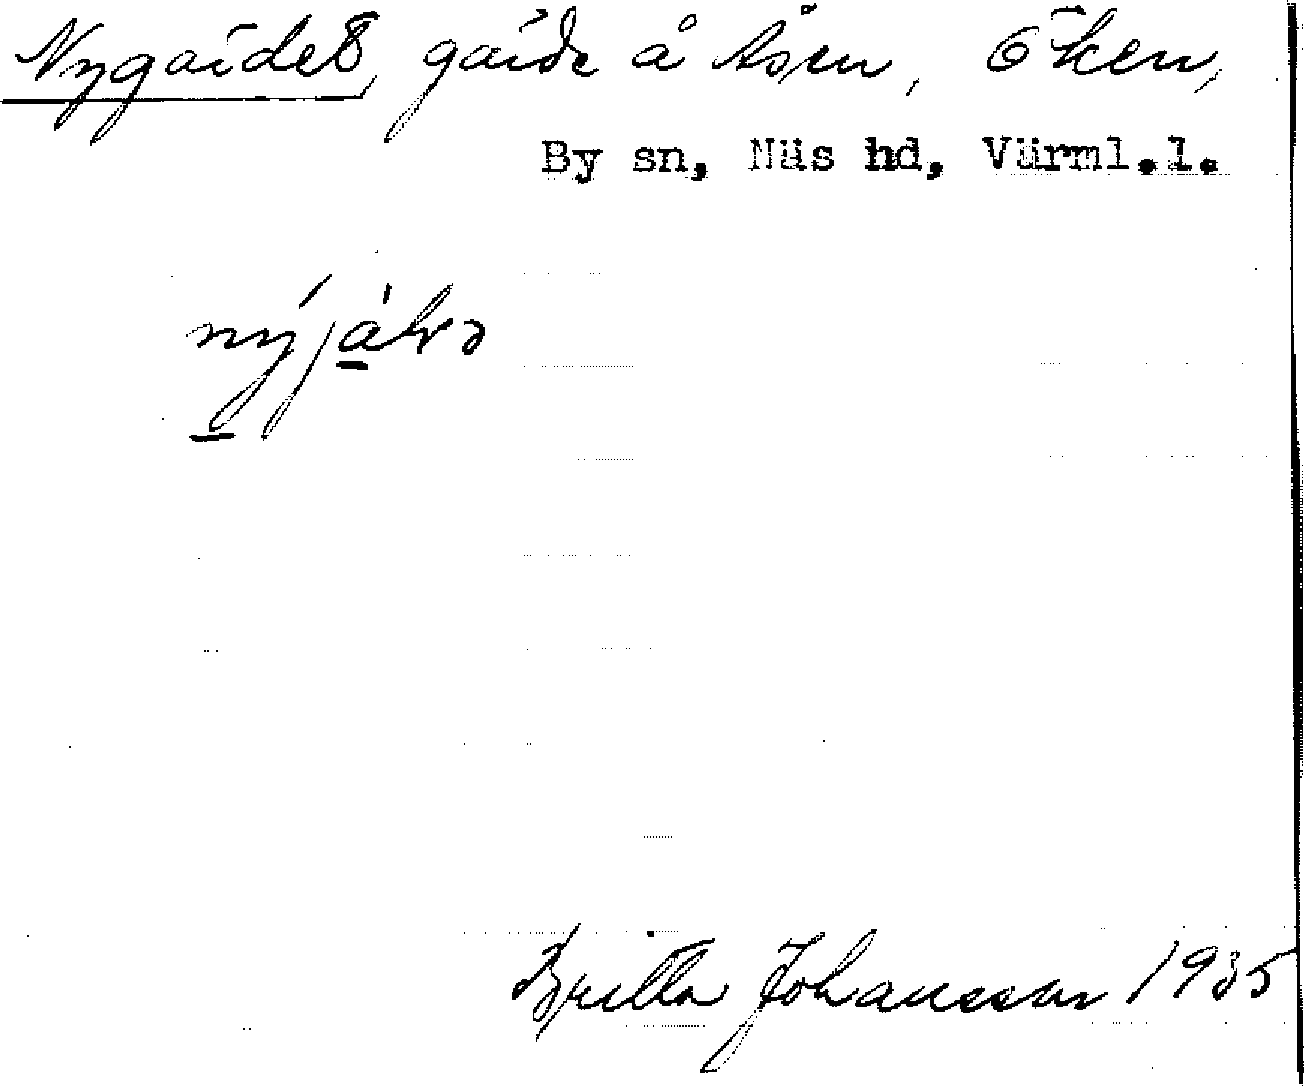 Nygärdet, gärde å Åsen, Öken,
By sn, Näs hd, Värml.l.
Brita Johansson 1935